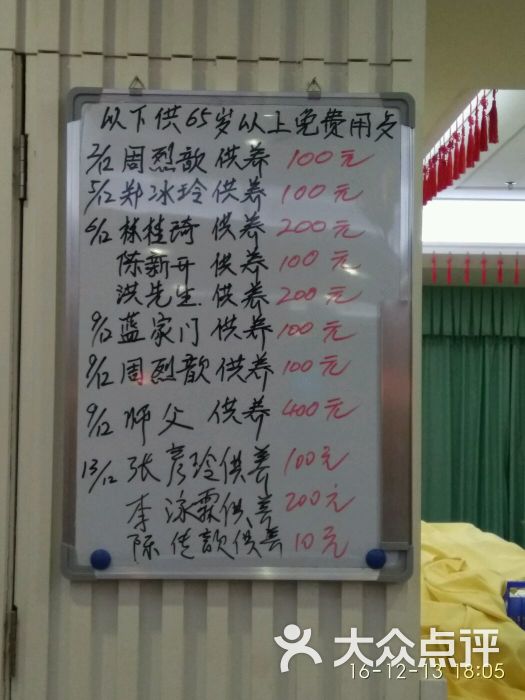 以下供65岁以上免费用歺
2/12 周烈歆 供养 100元
5/12 郑冰玲 供养 100元
6/12 林桂琦 供养 200元
陈新开 供养 100元
洪先生 供养 200元
9/12 蓝家门 供养 100元
9/12 周烈歆 供养 100元
9/12 师父 供养 400元
13/12 张彦玲 供养 100元
李泳霖 供养 200元
陈传歆 供养 10元
大众点评
16-12-13 18:05